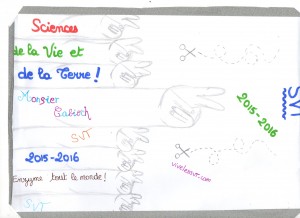 Sciences
de la Vie et
de la Terre !
Monsier
Cabioch
SVT
2015-2016
Enzyme tout le monde !
SVT
vivelessvt.com
2015-2016
SVT